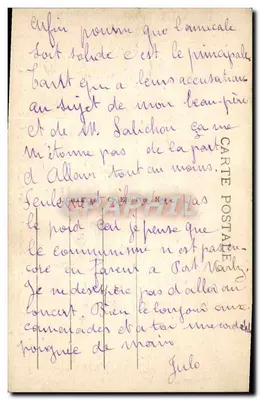 enfin pourvu que l'amicale
soit solide c'est le principale
Tant qu'a leurs accusations
au sujet de mon beau-père
et de M. Salichon ça ne
m'étonne pas de la part
d'Allour tout au moins.
Seule pas
le poid car je pense que
le communisme n'est pas en
core en faveur a Port
Je ne desespère pas d'aller au
concert. Bien le bonjour aux
camarades et a toi une cordiale
poignée de main
Julo
CARTE POSTALE